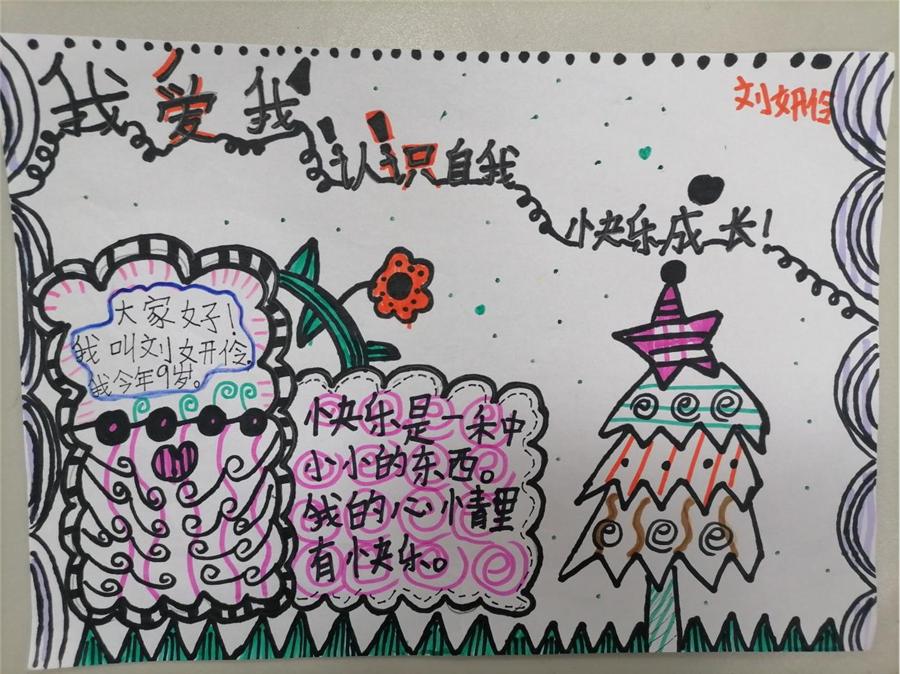 我爱我
认识自我
快乐成长!
刘妍伶
大家好!
我叫刘妍伶,
我今年9岁。
快乐是一朵中
小小的东西。
我的心情里
有快乐。